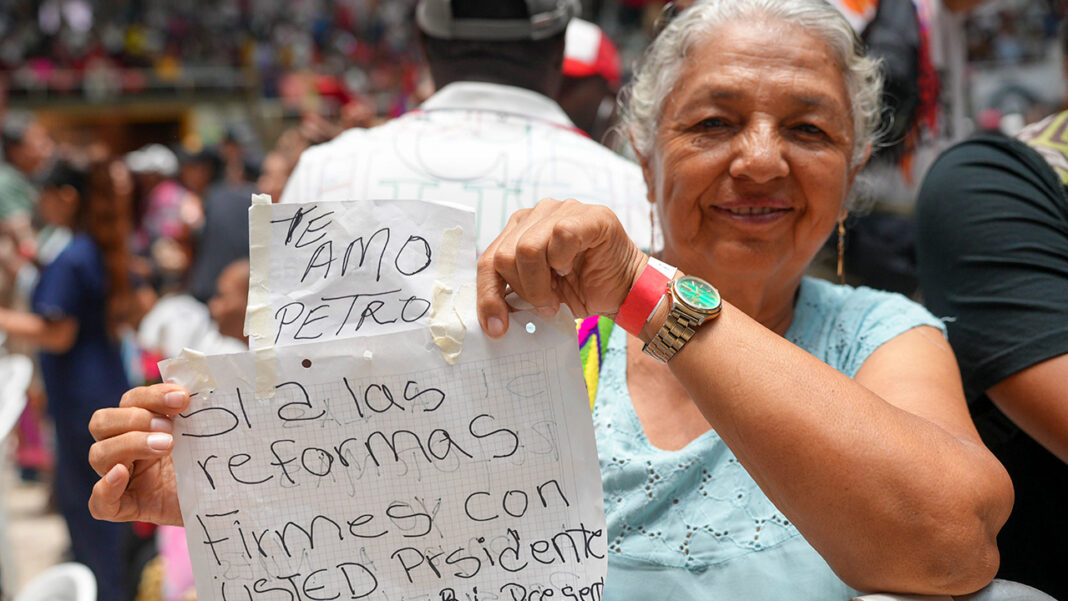 TE
AMO
PETRO
Si a las
reformas
Firmes con
USTED Prsidente